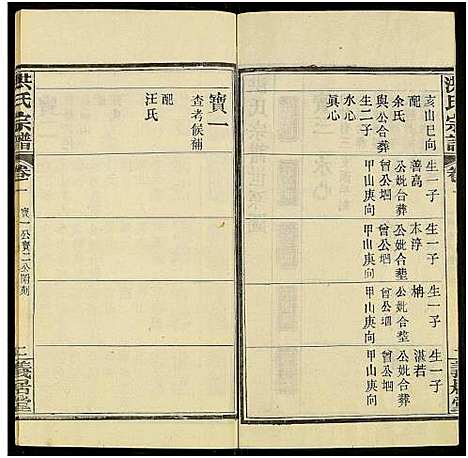 洪氏宗譜
卷一
亥山巳向
配
余氏
與公合葬
生二子
水心
真心
生一子
善高
公妣合葬
曾公垇
甲山庚向
生一子
木淳
公妣合塟
曾公垇
甲山庚向
生一子
柟
公妣合塟
曾公垇
甲山庚向
生一子
湛若
公妣合塟
曾公垇
甲山庚向
寶一
查考候補
配
汪氏
洪氏宗譜
卷一
寶一公寶二公附刻
義居堂